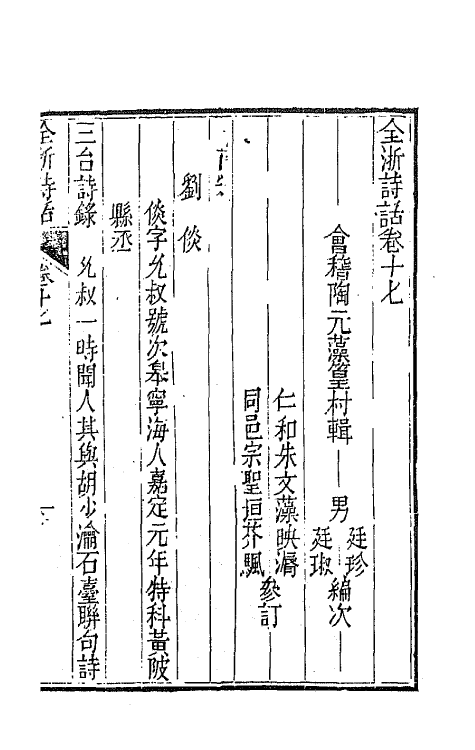 全浙詩話卷十七
會稽陶元藻篁村輯
男
廷珍
廷琡
編次
仁和朱文藻映漘
同邑宗聖垣芥颿
參訂
南宋
劉倓
倓字允叔號次皋寧海人嘉定元年特科黃陂
縣丞
三台詩錄 允叔一時聞人其與胡少瀹石臺聯句詩
全浙詩話 卷十七